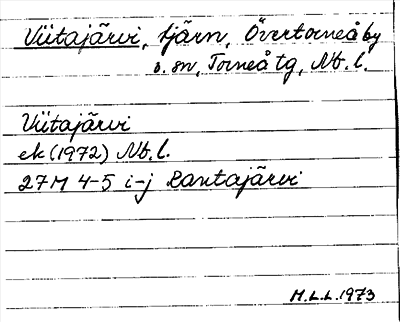 Viitajärvi, tjärn, Övertorneå by
o. sn, Torneå tg, Nb. l.
Viitajärvi
ek (1972) Nb. l.
27M 4-5 i-j Rantajärvi
M.L.L. 1973